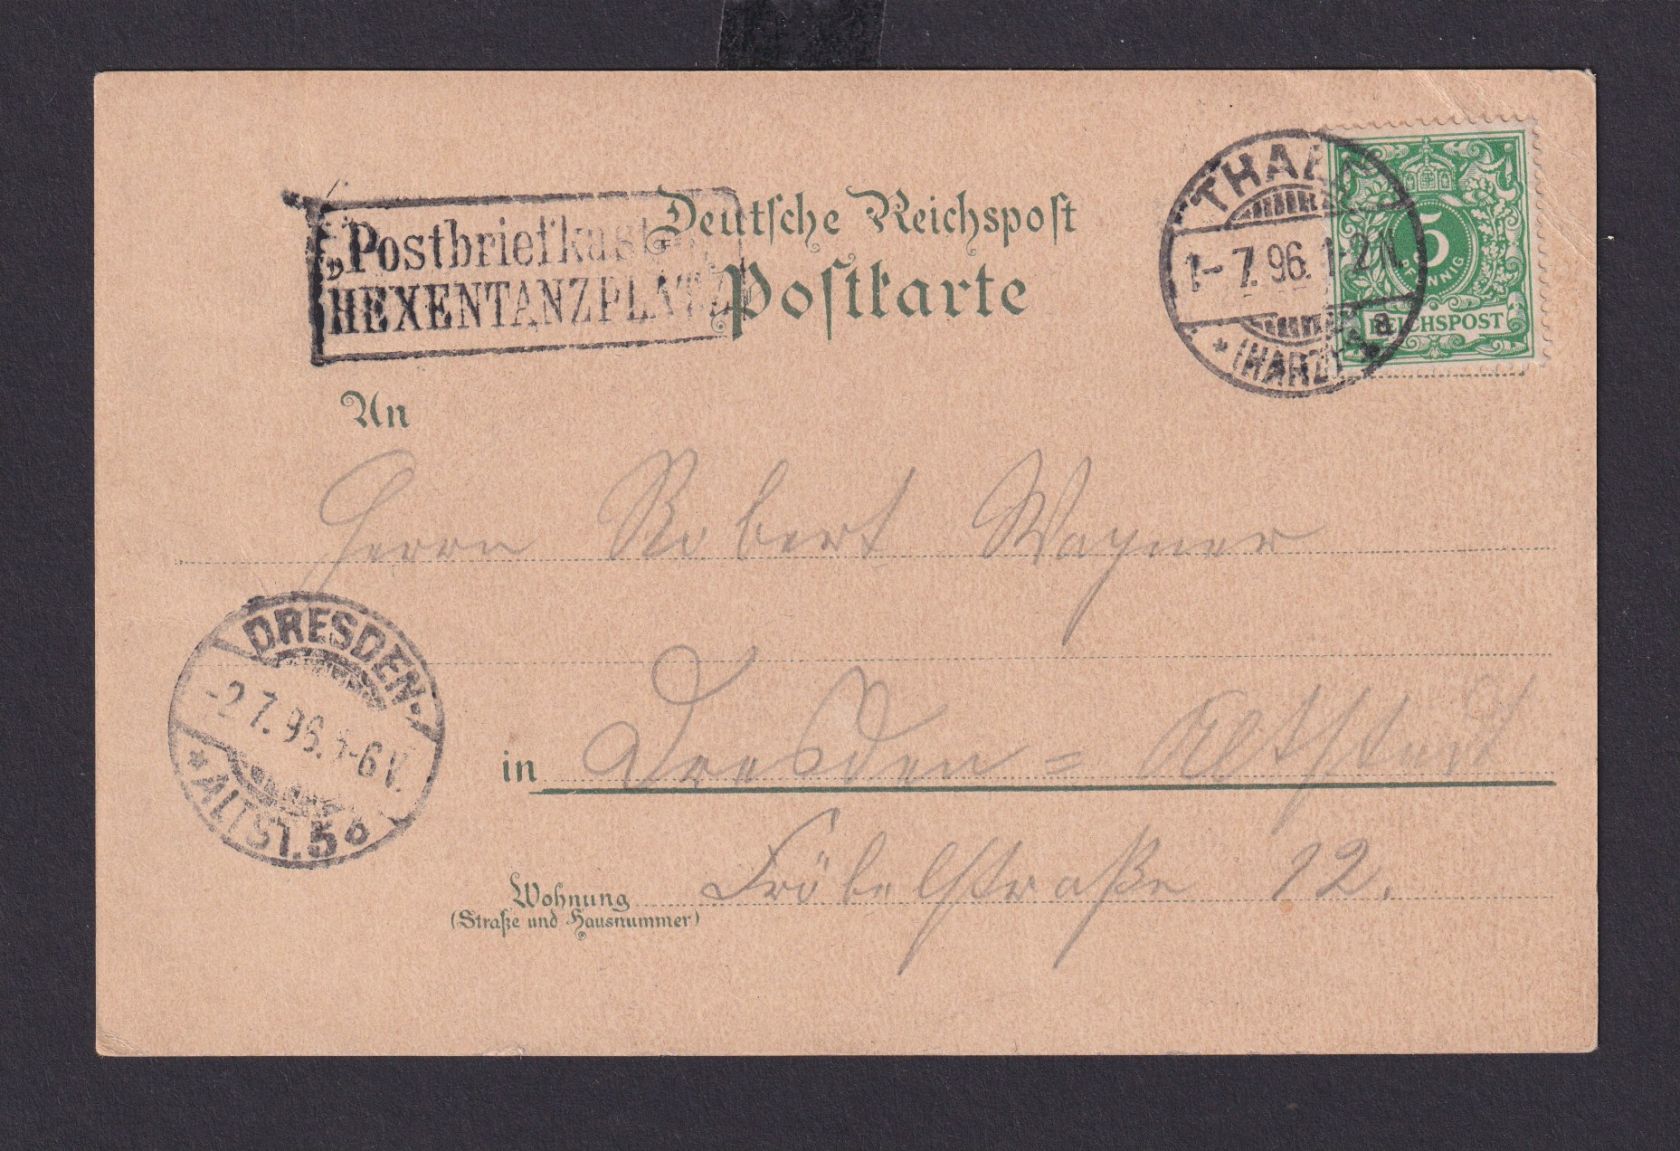 „Postbriefkasten
HEXENTANZPLATZ
Deutsche Reichspost
Postkarte
THALE
1-7.96.1-2N.
*(HARZ)* a
5
PFENNIG
REICHSPOST
An
Herrn Robert Wagner
DRESDEN-
-2 7.96.5-6V.
*ALTST.5 d
in Dresden = Altstadt
Wohnung Fröbelstraße 12.
(Straße und Hausnummer)